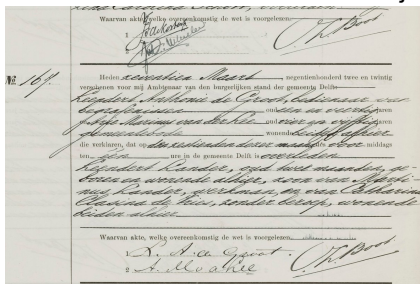 Waarvan akte, welke overeenkomstig de wet is voorgelezen.
1
2
No. 167.
Heden zeventien Maart, negentienhonderd twee en twintig
verschenen voor mij Ambtenaar van den burgerlijken stand der gemeente Delft:
Leendert Antonie de Groot, bidienaar van
begrafenissen oud een en veertig jaren
en Marinus van der Lee oud vier en vijftig jaren
gemeentebode wonende beiden alhier
die verklaren, dat op den zestienden dezer maand des voor middags
ten één ure in de gemeente Delft is overleden
Leendert Lander, oud twee maanden, ge-
boren en wonende alhier, zoon van Marti-
nus Lander, werkman, en van Catharina
Clasina de Vries, zonder beroep, wonende
beiden alhier.
Waarvan akte, welke overeenkomstig de wet is voorgelezen.
1 L. A. de Groot
2